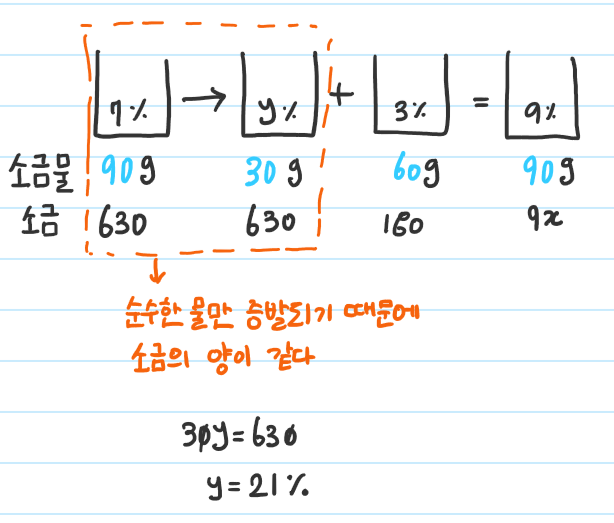 7% → y% + 3% = 9%
소금물 90g 30g 60g 90g
소금 630 630 180 9x
순수한 물만 증발되기 때문에
소금의 양이 같다
30y=630
y=21%